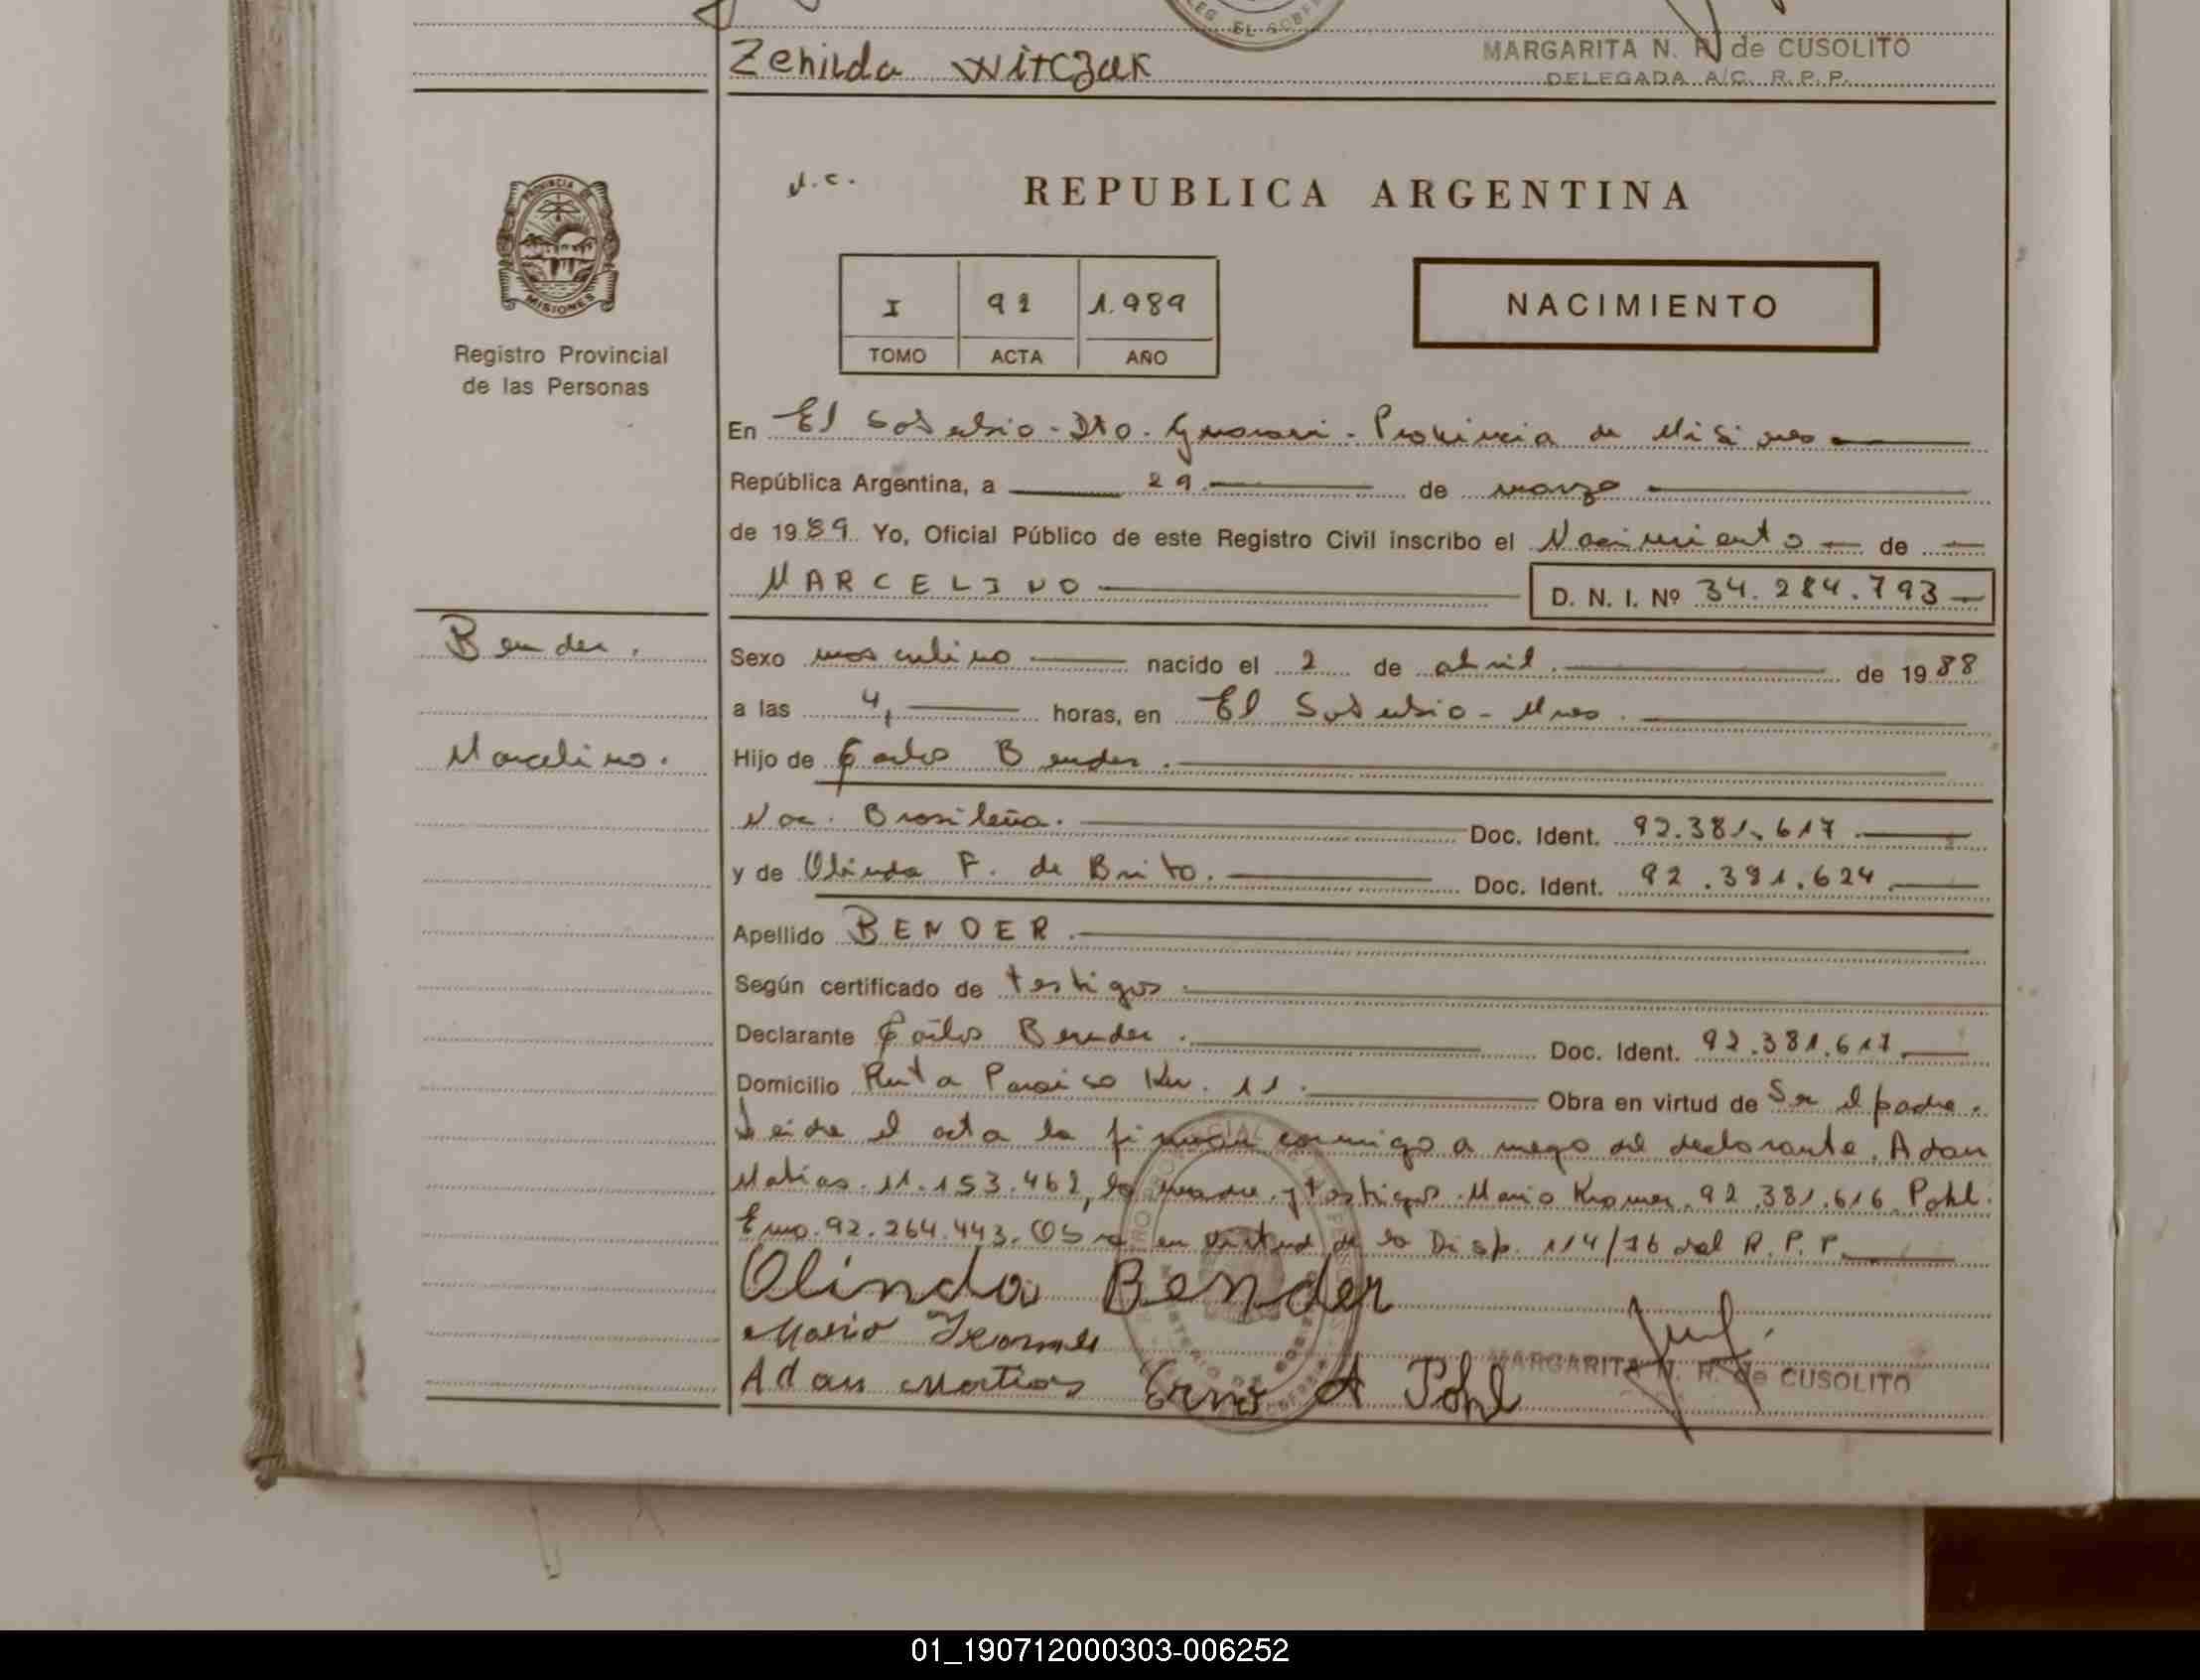 Zenilda Witczak
MARGARITA N. R. de CUSOLITO
DELEGADA A/C. R.P.P.
PROVINCIA DE
MISIONES
Registro Provincial
de las Personas
REPUBLICA ARGENTINA
I 92 1.989
TOMO ACTA AÑO
NACIMIENTO
En El Soberbio - Dto. Guarani - Provincia de Misiones
República Argentina, a 29 de marzo
de 1989. Yo, Oficial Público de este Registro Civil inscribo el Nacimiento de
MARCELINO D. N. I. Nº 34.284.793
Bender.
Marcelino.
Sexo masculino nacido el 2 de abril de 1988
a las 4, horas, en El Soberbio - Mnes.
Hijo de Carlos Bender.
Nac. Brasileña. Doc. Ident. 92.381.617
y de Olinda F. de Brito. Doc. Ident. 92.381.624
Apellido BENDER.
Según certificado de testigos.
Declarante Carlos Bender. Doc. Ident. 92.381.617
Domicilio Ruta Paraiso Km. 11. Obra en virtud de Ser el padre.
Leida el acta la firman conmigo a ruego del declarante, Adan
Matias. 11.153.462, la madre y testigos Mario Kromer, 92.381.616 Pohl.
Erno. 92.264.443. Obra en virtud de la Disp. 114/76 del R.P.P.
Olinda Bender
Mario
Adan Matias Erno A Pohl
MARGARITA N. R. de CUSOLITO
01_190712000303-006252